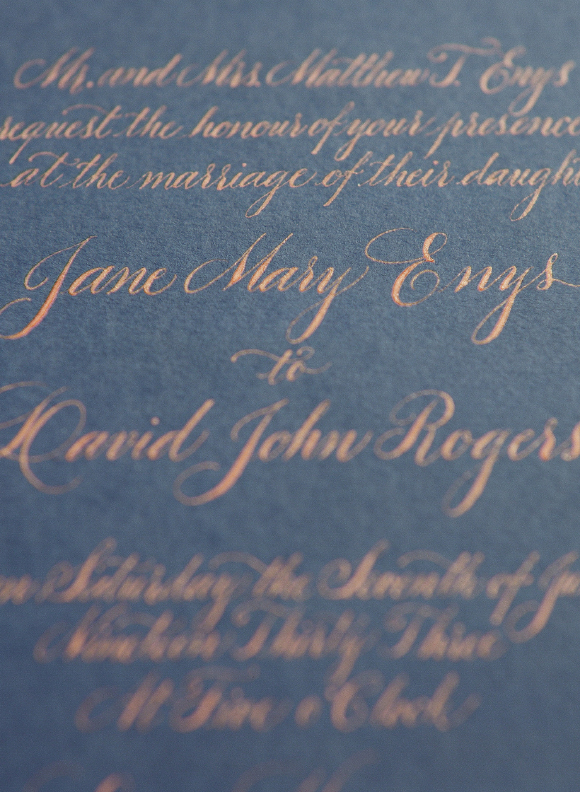 Mr. and Mrs. Matthew T. Enys
request the honour of your presence
at the marriage of their
Jane Mary Enys
to
David John Rogers
Saturday the Seventh of
Nineteen Thirty Three
At Five o'Clock